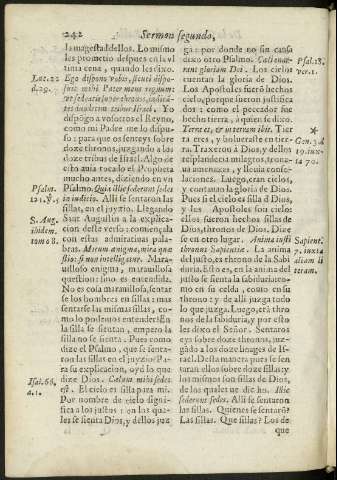 242
Sermon segundo,
la magestad dellos. Lo mismo
les prometio despues en la vl
tima cena, quando les dixo.
Luc. 22
Ego dispono vobis, sicuti dispo-
d. 29.
suit mihi Pater meus regnum:
vt sedeatis super thronos, iudicã
tes duodecim tribus Israel. Yo
dispõgo a vosotros el Reyno,
como mi Padre me lo dispu-
so: para que os senteys sobre
doze thronos, juzgando a los
doze tribus de Israel. Algo de
esto auia tocado el Propheta
mucho antes, diziendo en vn
Psalm.
Psalmo. Quia illic sederunt sedes
121. V.
in iudicio. Alli se sentaron las
sillas, en el juyzio. Llegando
S. Aug.
Sant Augustin a la explica-
ibidem.
cion deste verso: comença la
tomo 8.
con estas admiratiuas pala-
bras. Mirum ænigma, mira que
stio: si non intelligatur. Mara-
uilloso enigma, marauillosa
question: sino es entendida.
No es cosa marauillosa, sentar
se los hombres en sillas: mas
sentarse las mismas sillas, co-
mo lo podemos entender? En
la silla se sientan, empero la
silla no se sienta. Pues como
dize el Psalmo, que se senta-
ron las sillas en el juyzio? Pa
ra su explicacion, oyd lo que
Isai. 66,
dize Dios. Cælum mihi sedes
a. 1.
est. El cielo es silla para mi.
Por nombre de cielo signifi-
ca a los justos: en los qua-
les se sienta Dios, y dellos juz
ga: por donde no sin causa
dixo otro Psalmo. Cæli enar-
Psal. 18.
rant gloriam Dei. Los cielos
ver. 1.
cuentan la gloria de Dios.
Los Apostoles fuerõ hechos
cielo, porque fueron justifica
dos: como el peccador fue
hecho tierra, à quien se dixo.
Terra es, & in terram ibis. Tier
*
ra eres, y boluerasте en tier-
Gen. 3. d
ra. Traxeron à Dios, y dellos
19. iux-
resplandecia milagros, trona-
ta 70.
ua amenazas, y lleuia conso-
laciones. Luego, eran cielos,
y contauan la gloria de Dios.
Pues si el cielo es silla de Dios,
y los Apostoles son cielo:
ellos fueron hechos sillas de
Dios, thronos de Dios. Dize
se en otro lugar. Anima iusti
Sapient.
thronus Sapientiæ. La anima
7. iuxta
del justo, es throno de la Sabi
aliam li
duria. Esto es, en la anima del
teram.
justo se sienta la sabiduria: co-
mo en su celda, como en su
throno: y de alli juzga todo
lo que juzga. Luego, erã thro
nos de la sabiduria, y por esto
les dixo el Señor. Sentaros
eys sobre doze thronos, juz-
gado a los doze linages de Is-
rael. Desta manera pues se sen
taran ellos sobre las sillas: y
los mismos son sillas de Dios,
de los quales se dize. Illic
sederunt sedes. Alli se sentaron
las sillas. Quienes se sentarõ?
Las sillas. Que sillas? Los de
que